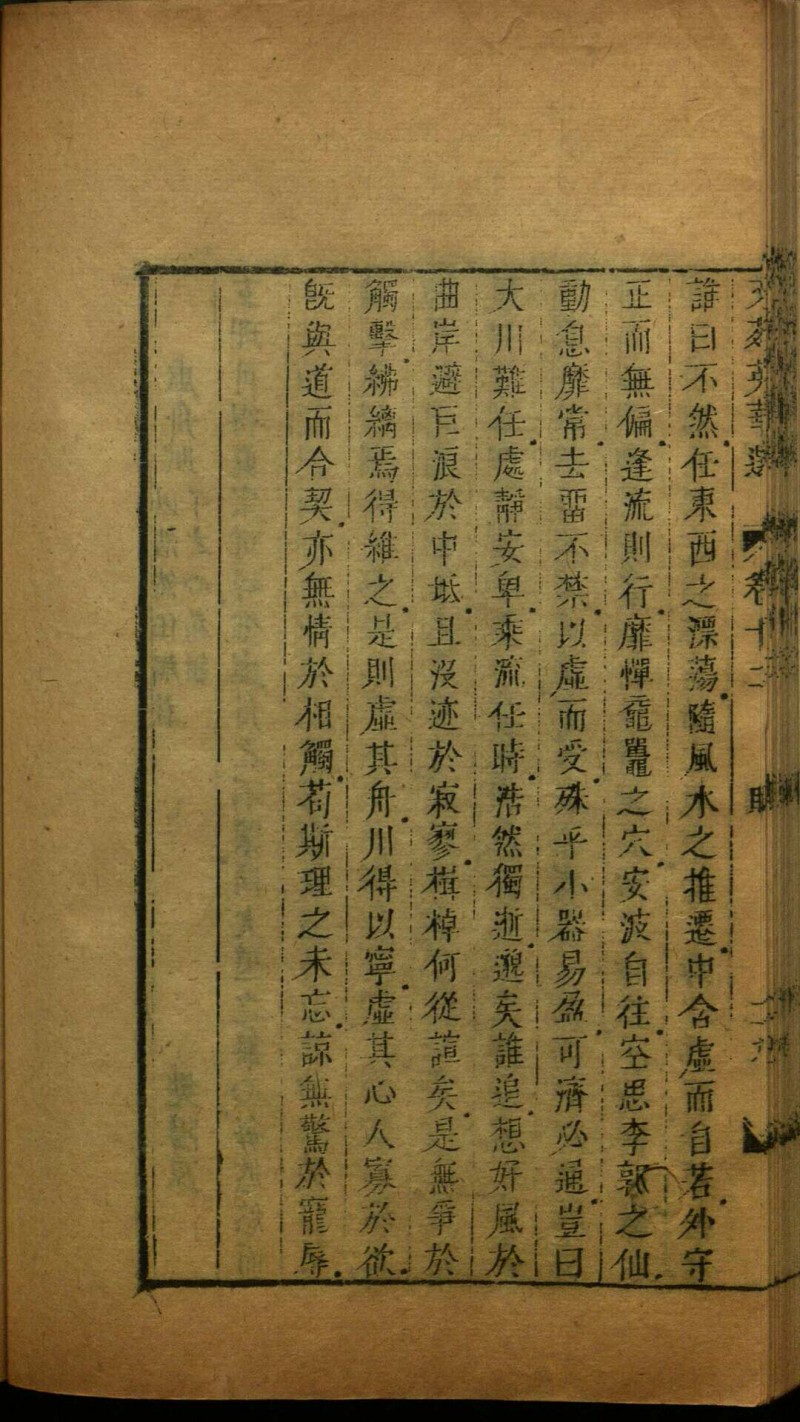 文苑英華選 卷十二
誰曰不然任東西之漂蕩隨風水之推遷中含虛而自若外守
正而無偏逢流則行靡憚黿鼉之穴安波自往空思李郭之仙
動息靡常去畱不禁以虛而受殊乎小器易盈可濟必通豈曰
大川難任處靜安卑乘流任時浩然獨逝邈矣誰追想好風於
曲岸避巨浪於中坻且沒迹於寂寥楫棹何從諠矣是無爭於
觸擊紼纚焉得維之是則虛其舟川得以寧虛其心人寡於欲
旣與道而合契亦無情於相觸苟斯理之未忘諒無驚於寵辱